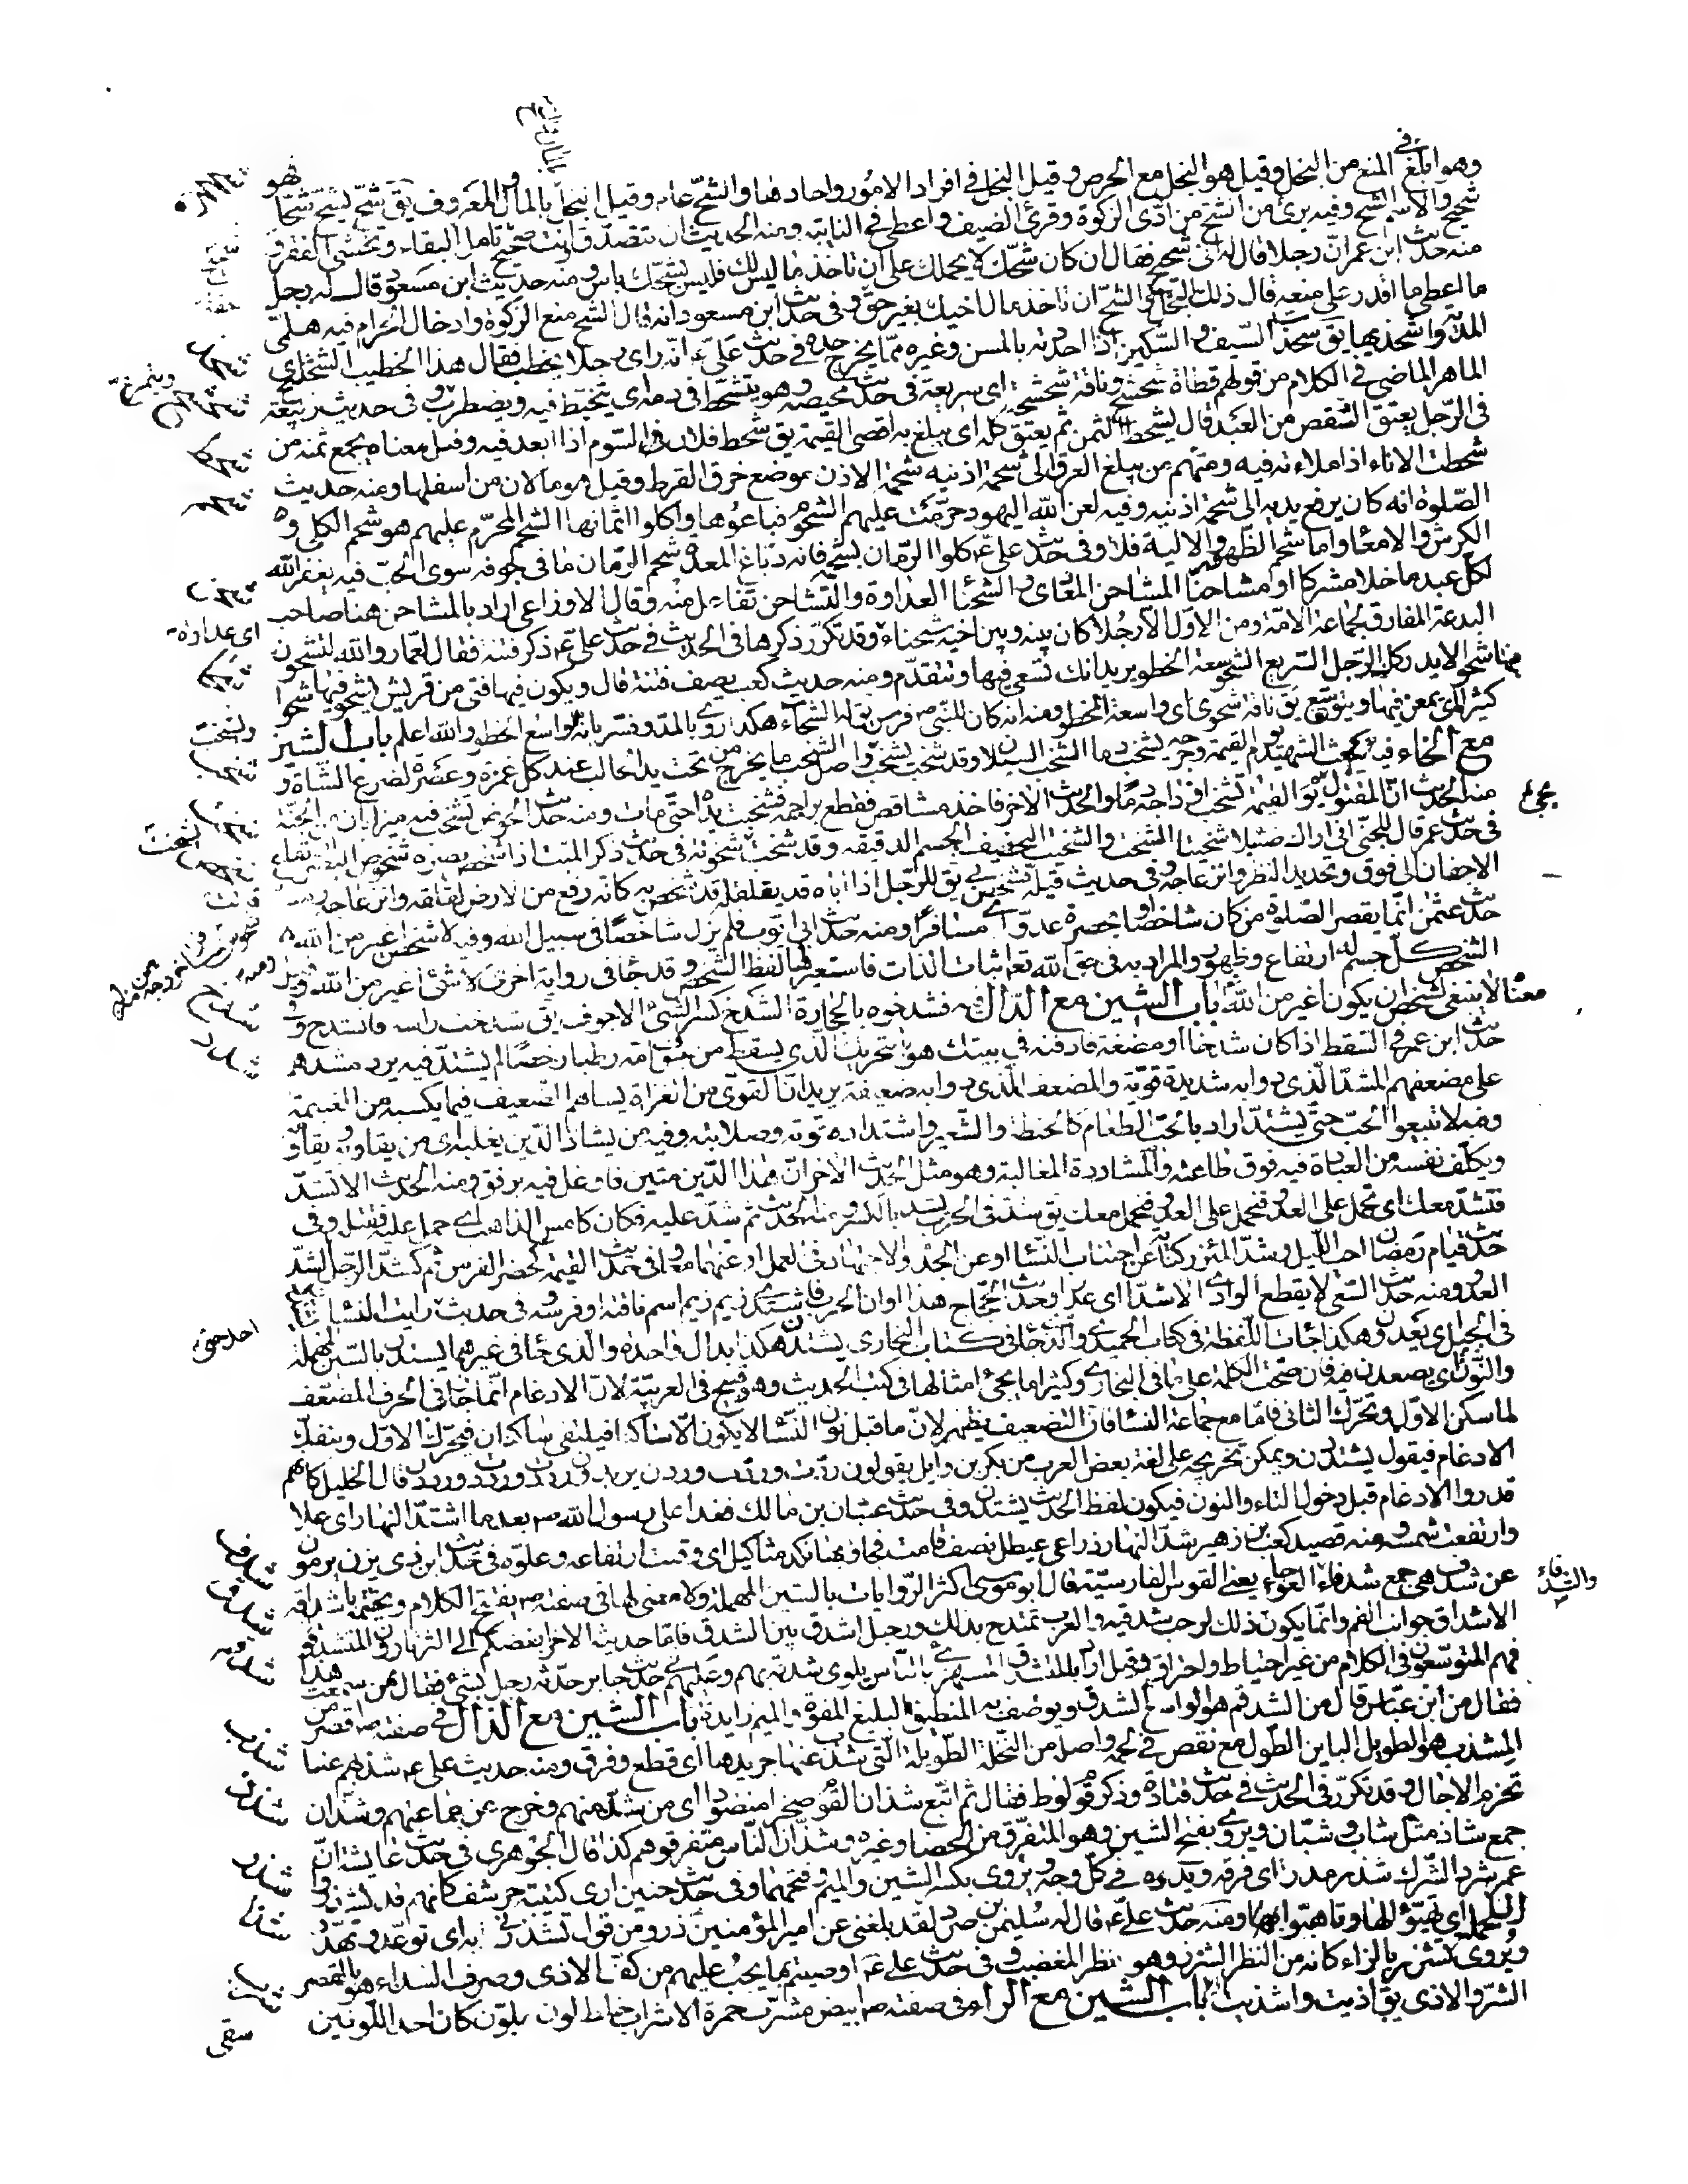 وهو ابلغ في المنع من البخل وقيل هو البخل مع الحرص وقيل البخل في افراد الامور واحادها والشح عام وقيل البخل بالمال والمعروف يق شح يشح شحا فهو
شحيح والاسم الشح وفيه برئ من الشح من ادى الزكوة وقرى الضيف واعطى في النائبة ومنه الحديث ان تتصدق وانت صحيح شحيح تامل البقاء وتخشى الفقر و
منه حديث ابن عمر ان رجلا قال له اني شحيح فقال ان كان شحك لا يحملك على ان تاخذ ما ليس لك فليس بشحك باس ومنه حديث ابن مسعود قال له رجل
ما اعطي ما اقدر على منعه قال ذلك البخل الشح ان تاخذ مال اخيك بغير حق وفي حديث ابن مسعود انه قال الشح منع الزكوة وادخال الحرام فيه هلمي
المدية واشحذيها يق شحذت السيف والسكين اذا حددته بالمسن وغيره مما يخرج حده في حديث علي ع انه راى رجلا يخطب فقال هذا الخطيب الشحشح اي
الماهر الماضي في الكلام من قولهم قطاة شحشح وناقة شحشحة اي سريعة في حديث محيصة وهو يتشحط في دمه اي يتخبط فيه ويضطرب وفي حديث ربيعة
في الرجل يعتق الشقص من العبد قال يشحط الثمن ثم يعتق كله اي يبلغ به اقصى القيمة يق شحط فلان في السوم اذا ابعد فيه وقيل معناه يجمع ثمنه من
شحطت الاناء اذا ملاءته فيه ومنهم من يبلغ العرق الى شحمة اذنيه شحمة الاذن موضع خرق القرط وقيل هو ما لان من اسفلها ومنه حديث
الصلوة انه كان يرفع يديه الى شحمة اذنيه وفيه لعن الله اليهود حرمت عليهم الشحوم فباعوها واكلوا اثمانها الشحم المحرم عليهم هو شحم الكلى و
الكرش والامعا واما شحم الظهور والالية فلا وفي حديث علي ع كلوا الرمان بشحمه فانه دباغ المعدة شحم الرمان ما في جوفه سوى الحب فيه يغفر الله
لكل عبد ما خلا مشركا او مشاحنا المشاحن المعادي والشحنا العداوة والتشاحن تفاعل منه وقال الاوزاعي اراد بالمشاحن هنا صاحب
البدعة المفارق لجماعة الامة ومن الاول الا رجلا كان بينه وبين اخيه شحناء وقد تكرر ذكرها في الحديث في حديث علي ع ذكر فتنة فقال لعمار والله لتشحون
فيها شحوا لا يدركك الرجل السريع الشحو سعة الخطو يريد انك تسعى فيها وتتقدم ومنه حديث كعب يصف فتنة قال ويكون فيها فتى من قريش يشحو فيها شحوا
كثيرا اي يمعن فيها ويتوسع يق ناقة شحوى اي واسعة الخطو ومنه انه كان للنبي ص فرس يق له الشحاء هكذا روي بالمد وفسر بانه الواسع الخطو والله اعلم باب الشين
مع الخاء فيه يبعث الشهيد يوم القيمة وجرحه يشخب دما الشخب السيلان وقد شخب يشخب واصل الشخب ما يخرج من تحت يد الحالب عند كل غمزة وعصرة لضرع الشاة و
منه الحديث ان المقتول يوم القيمة تشخب اوداجه دما والحديث الاخر فاخذ مشاقص فقطع براجمه فشخبت يداه حتى مات ومنه حديث الحوض يشخب فيه ميزابان من الجنة
في حديث عمر قال للجني اني اراك ضئيلا شخيتا الشخت والشخيت النحيف الجسم الدقيقه وقد شخت شخوتة في حديث ذكر الميت اذا شخص بصره شخوص البصر ارتفاع
الاجفان الى فوق وتحديد النظر وانزعاجه وفي حديث قيلة فشخص بي يق للرجل اذا اتاه ما يقلقه قد شخص به كانه رفع من الارض لقلقه وانزعاجه ومنه
حديث عثمن انما يقصر الصلوة من كان شاخصا او بحضرة عدو اي مسافرا ومنه حديث ابي ايوب فلم يزل شاخصا في سبيل الله وفيه لا شخص اغير من الله
الشخص كل جسم له ارتفاع وظهور والمراد به في حق الله تعالى اثبات الذات فاستعير لها لفظ الشخص وقد جا في رواية اخرى لا شئ اغير من الله وقيل
معناه لا ينبغي لشخص ان يكون اغير من الله باب الشين مع الدال فيه فشدخوه بالحجارة الشدخ كسر الشئ الاجوف يق شدخت راسه فانشدخ و
حديث ابن عمر في السقط اذا كان شدخا او مضغة فادفنه في بيتك هو بالتحريك الذي يسقط من بطن امه رطبا رخصا لم يشتد فيه يرد مشدهم
على مضعفهم المشد الذي دوابه شديدة قوية والمضعف الذي دوابه ضعيفة يريد ان القوي من الغزاة يساهم الضعيف فيما يكسبه من الغنيمة
وفيه لا تبيعوا الحب حتى يشتد اراد بالحب الطعام كالحنطة والشعير واشتداده قوته وصلابته وفيه من يشاد الدين يغلبه اي من يقاويه ويقاومه
ويكلف نفسه من العبادة فيه فوق طاقته والمشاددة المغالبة وهو مثل الحديث الاخر ان هذا الدين متين فاوغل فيه برفق ومنه الحديث الا تشد
فتشد معك اي تحمل على العدو فنحمل معك يق شد في الحرب يشد بالكسر ومنه الحديث ثم شد عليه فكان كامس الذاهب اي حمل عليه فقتله وفي
حديث قيام رمضان احيا الليل وشد المئزر كناية عن اجتناب النسا او عن الجد والاجتهاد في العمل او عنهما معا وفي حديث القيمة كحضر الفرس ثم كشد الرجل الشد
العدو ومنه حديث السعي لا يقطع الوادي الا شدا اي عدوا وحديث الحجاج هذا اوان الحرب فاشتدي زيم زيم اسم ناقته او فرسه في حديث رايت النسا يشتددن
في الجبل اي يعدون هكذا جات اللفظة في كتاب الحميدي والذي جا في كتاب البخاري يشتدن هكذا بدال واحدة والذي جا في غيرهما يسندن بالسين المهملة
والنون اي يصعدن فيه فان صحت الكلمة على ما في البخاري وكثيرا ما يجئ امثالها في كتب الحديث وهو قبيح في العربية لان الادغام انما جا في الحرف المضعف
لما سكن الاول وتحرك الثاني فاما مع جماعة النسا فان التضعيف يظهر لان ما قبل نون النسا لا يكون الا ساكنا فيلتقي ساكنان فيحرك الاول وينفك
الادغام فيقول يشتددن ويمكن تخريجه على لغة بعض العرب من بكر بن وايل يقولون ردت وردت وردن يريدون رددت ورددت ورددن قال الخليل كانهم
قدروا الادغام قبل دخول التاء والنون فيكون لفظ الحديث يشتدن وفي حديث عتبان بن مالك فغدا على رسول الله ص بعد ما اشتد النهار اي علا
وارتفعت شمسه ومنه قصيد كعب بن زهير شد النهار ذراعي عيطل نصف قامت فجاوبها نكد مثاكيل اي وقت ارتفاعه وعلوه في حديث ابن ذي يزن يرمون
عن شدف هي جمع شدفاء والشدفاء العوجاء يعني القوس الفارسية قال ابو موسى اكثر الروايات بالسين المهملة ولا معنى لها في صفته ص يفتتح الكلام ويختمه باشداقه
الاشداق جوانب الفم وانما يكون ذلك لرحب شدقيه والعرب تمتدح بذلك ورجل اشدق بين الشدق فاما حديث الاخر ابغضكم الي الثرثارون المتشدقو
فهم المتوسعون في الكلام من غير احتياط واحتراز وقيل اراد بالمتشدق المستهزئ بالناس يلوي شدقه بهم وعليهم في حديث جابر حدثه رجل بشئ فقال ممن سمعت هذا
فقال من ابن عباس قال من الشدقم هو الواسع الشدق ويوصف به المنطيق البليغ المفوه والميم زايدة باب الشين مع الذال في صفته ص اقصر من
المشذب هو الطويل الباين الطول مع نقص في لحمه واصله من النخلة الطويلة التي شذب عنها جريدها اي قطع وفرق ومنه حديث علي ع شذبهم عنا
تخرم الاجال وقد تكرر في الحديث في حديث قتادة وذكر قوم لوط فقال ثم اتبع شذان القوم صخرا منضودا اي من شذ منهم وخرج عن جماعتهم وشذان
جمع شاذ مثل شاب وشبان ويروى بفتح الشين وهو المتفرق من الحصا وغيره وشذان الناس متفرقوهم كذا قال الجوهري في حديث عايشة ان
عمر شرد الشرك شذر مذر اي فرقه وبدده في كل وجه ويروى بكسر الشين والميم وفتحهما وفي حديث حنين ارى كتيبة حرشف كانهم قد تشذروا
للحملة اي تهيؤا لها وتاهبوا بها ومنه حديث علي ع قال له سليمن بن صرد لقد بلغني عن امير المؤمنين ذرو من قول تشذر لي به اي توعد وتهدد
ويروى تشزر بالزاء كانه من النظر الشزر وهو نظر المغضب وفي حديث علي ع اوصيتهم بما يجب عليهم من كف الاذى وصرف الشذاء هو بالقصر
الشر والاذى يق اذيت واشذيت باب الشين مع الراء في صفته ص ابيض مشرب حمرة الاشراب خلط لون بلون كان احد اللونين
سقى